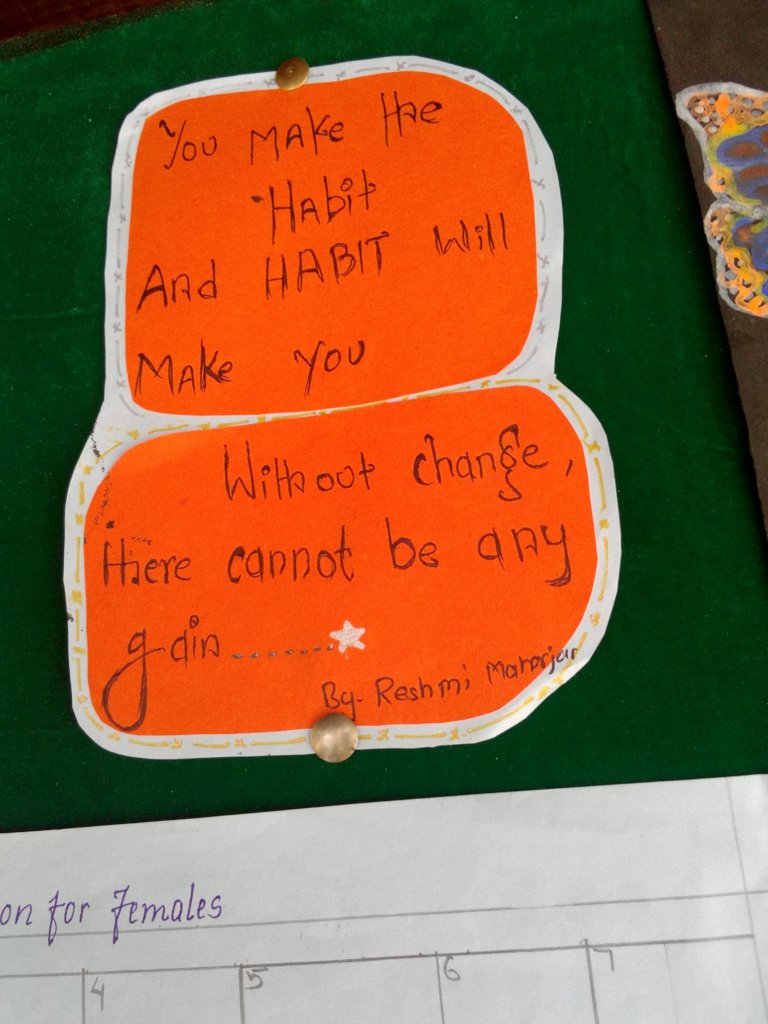 You make the
Habit
And HABIT Will
Make you
Without change,
there cannot be any
gain........
By- Reshmi Maharjan
on for females
4 5 6 7